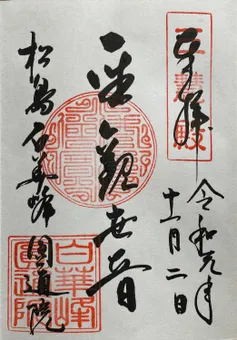 奉拝
三慧殿
令和元年
十一月二日
聖観世音
松島白華峰
圓通院
白華峰
圓通院